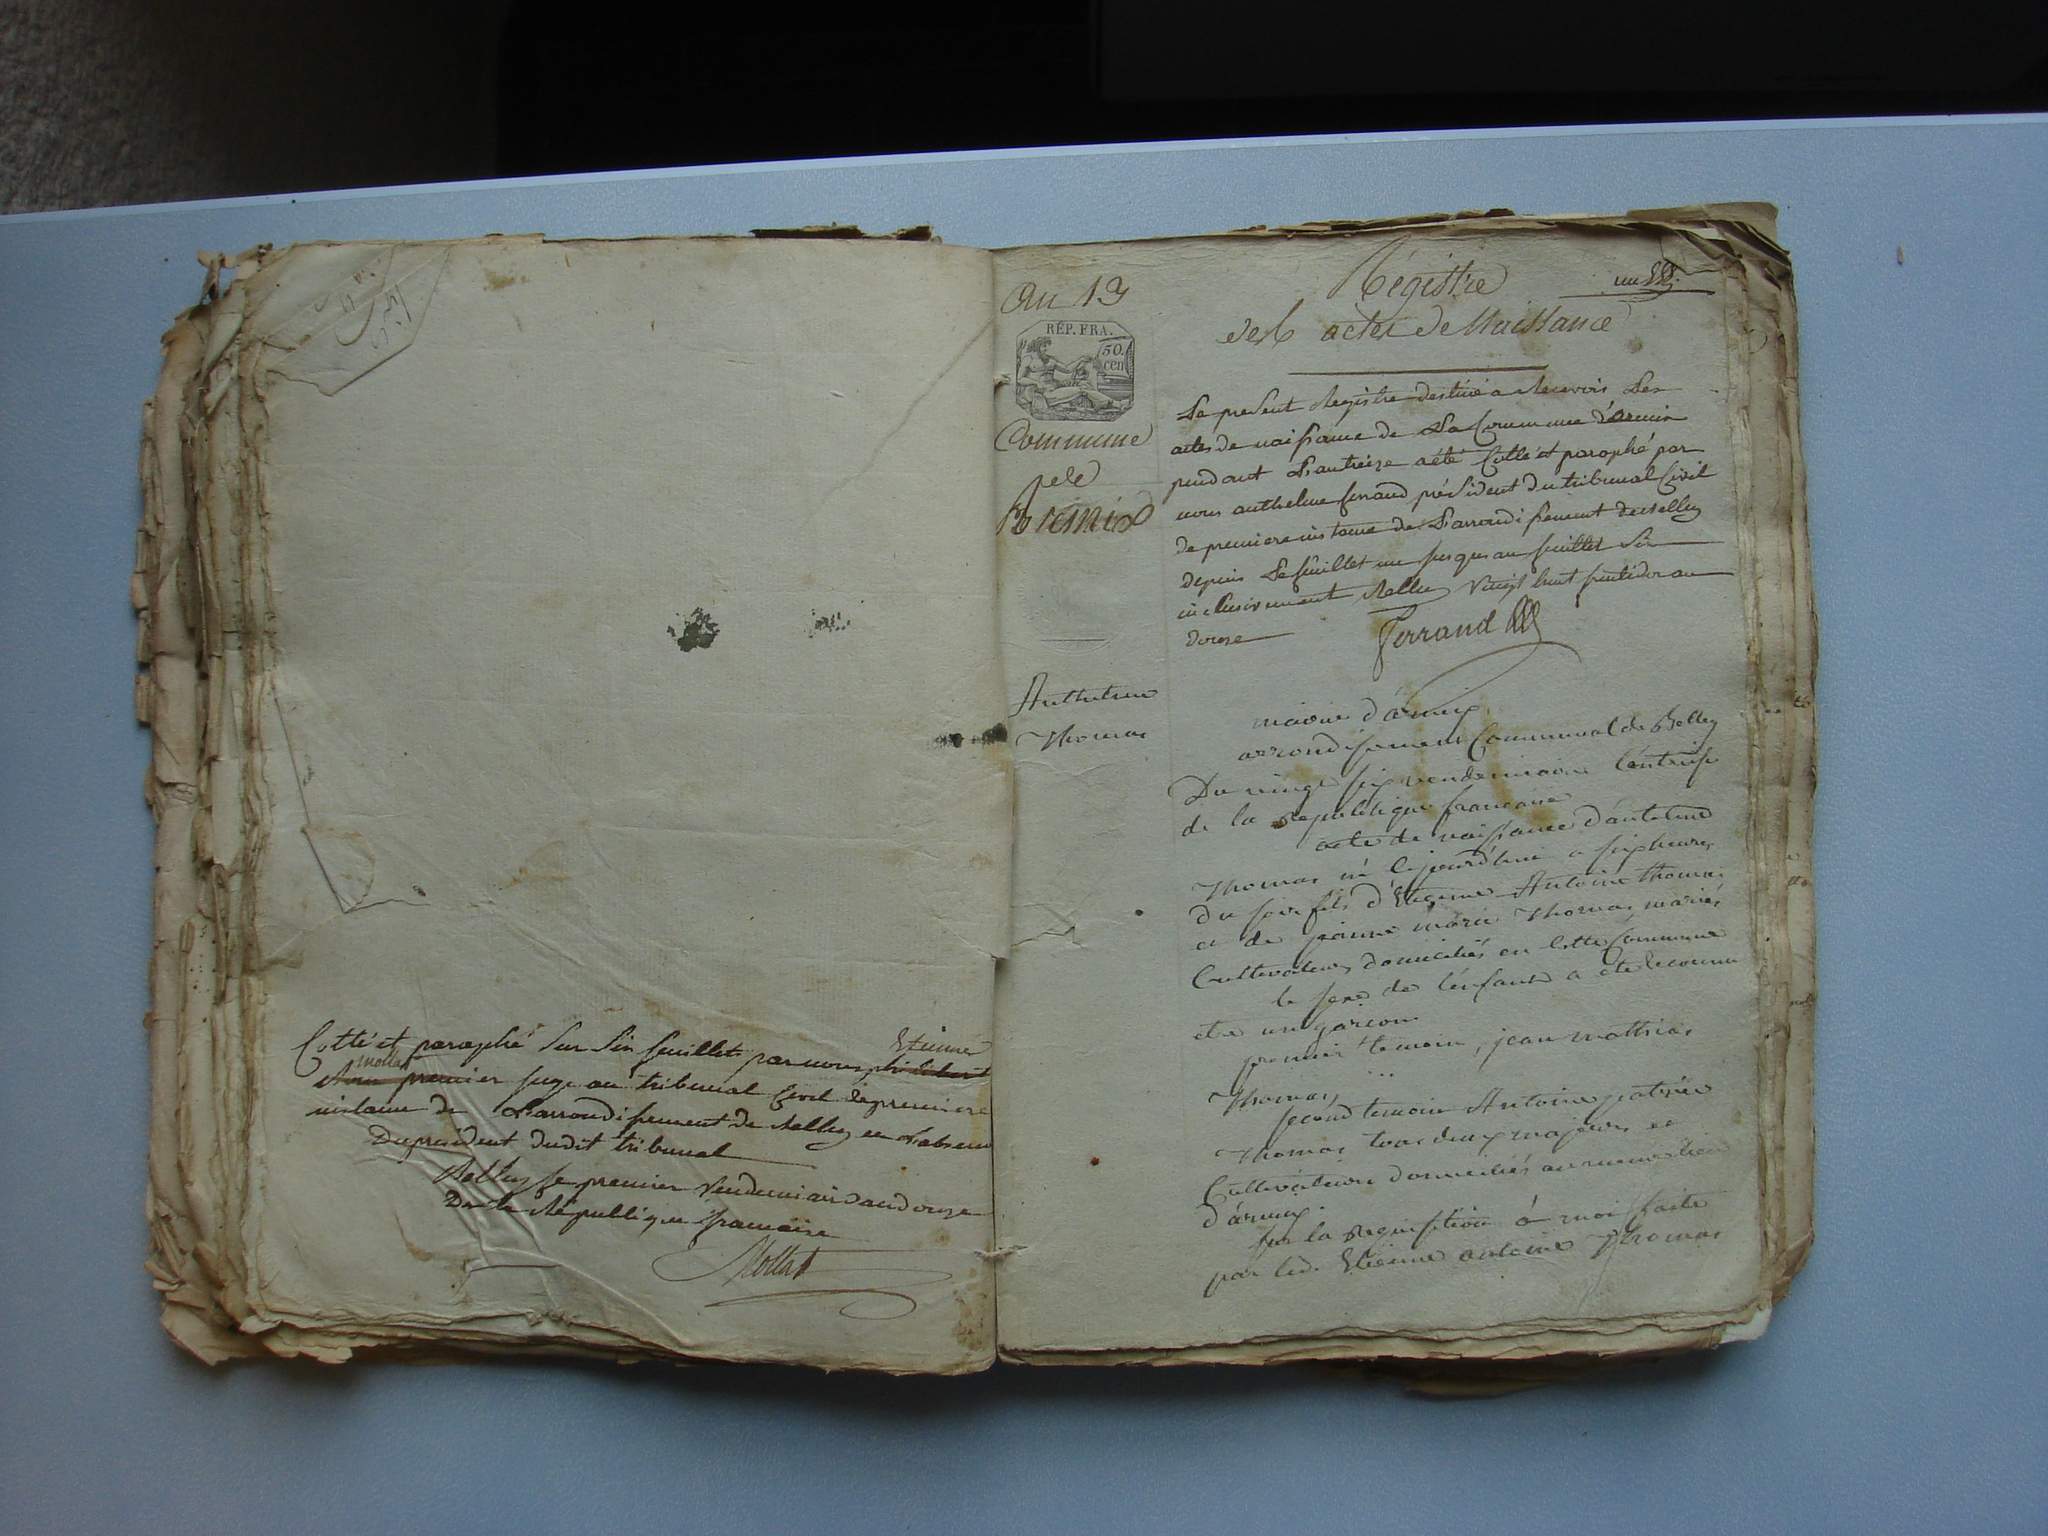 Cotté et paraphé Sur Six feuillets par nous Etienne
mollet premier juge au tribunal Civil de premiere
instance de L'arrondissement de Belley en L'absence
Du président dudit tribunal
Belley le premier Vendemiaire an douze
De la République francaise
Mollet
An 13
RÉP. FRA.
50.
cen
Commune
de
Armix
Anthelme
Thomas
un
Régistre
des actes de Naissance
Le present Registre destiné a Recevoir Les
actes de naissance de La Commune d'armix
pendant L'an treize a été Cotté et paraphé par
nous anthelme ferrand président du tribunal Civil
de premiere instance de L'arrondissement de Belley
depuis Le feuillet un jusques au feuillet Six
inclusivement Belley Vingt huit fructidor an
douze
Ferrand
mairie d'armix
arrondissement Communal de Belley
Du vingt six vendemiaire l'an treize
de la Republique francaise
acte de naissance d'antelme
Thomas né le jourd'hui a six heures
du soir fils d'Etienne Antoine thomas
et de jeanne marie Thomas, mariés
Cultivateurs domiciliés en cette Commune
le sexe de l'enfant a eté reconnu
etre un garcon
premier temoin, jean mathieu
Thomas,
second temoin Antoine
Thomas tous deux majeurs et
Cultivateurs domiciliés au meme lieu
d'armix.
sur la requisition á moi faite
par led. Etienne antoine Thomas